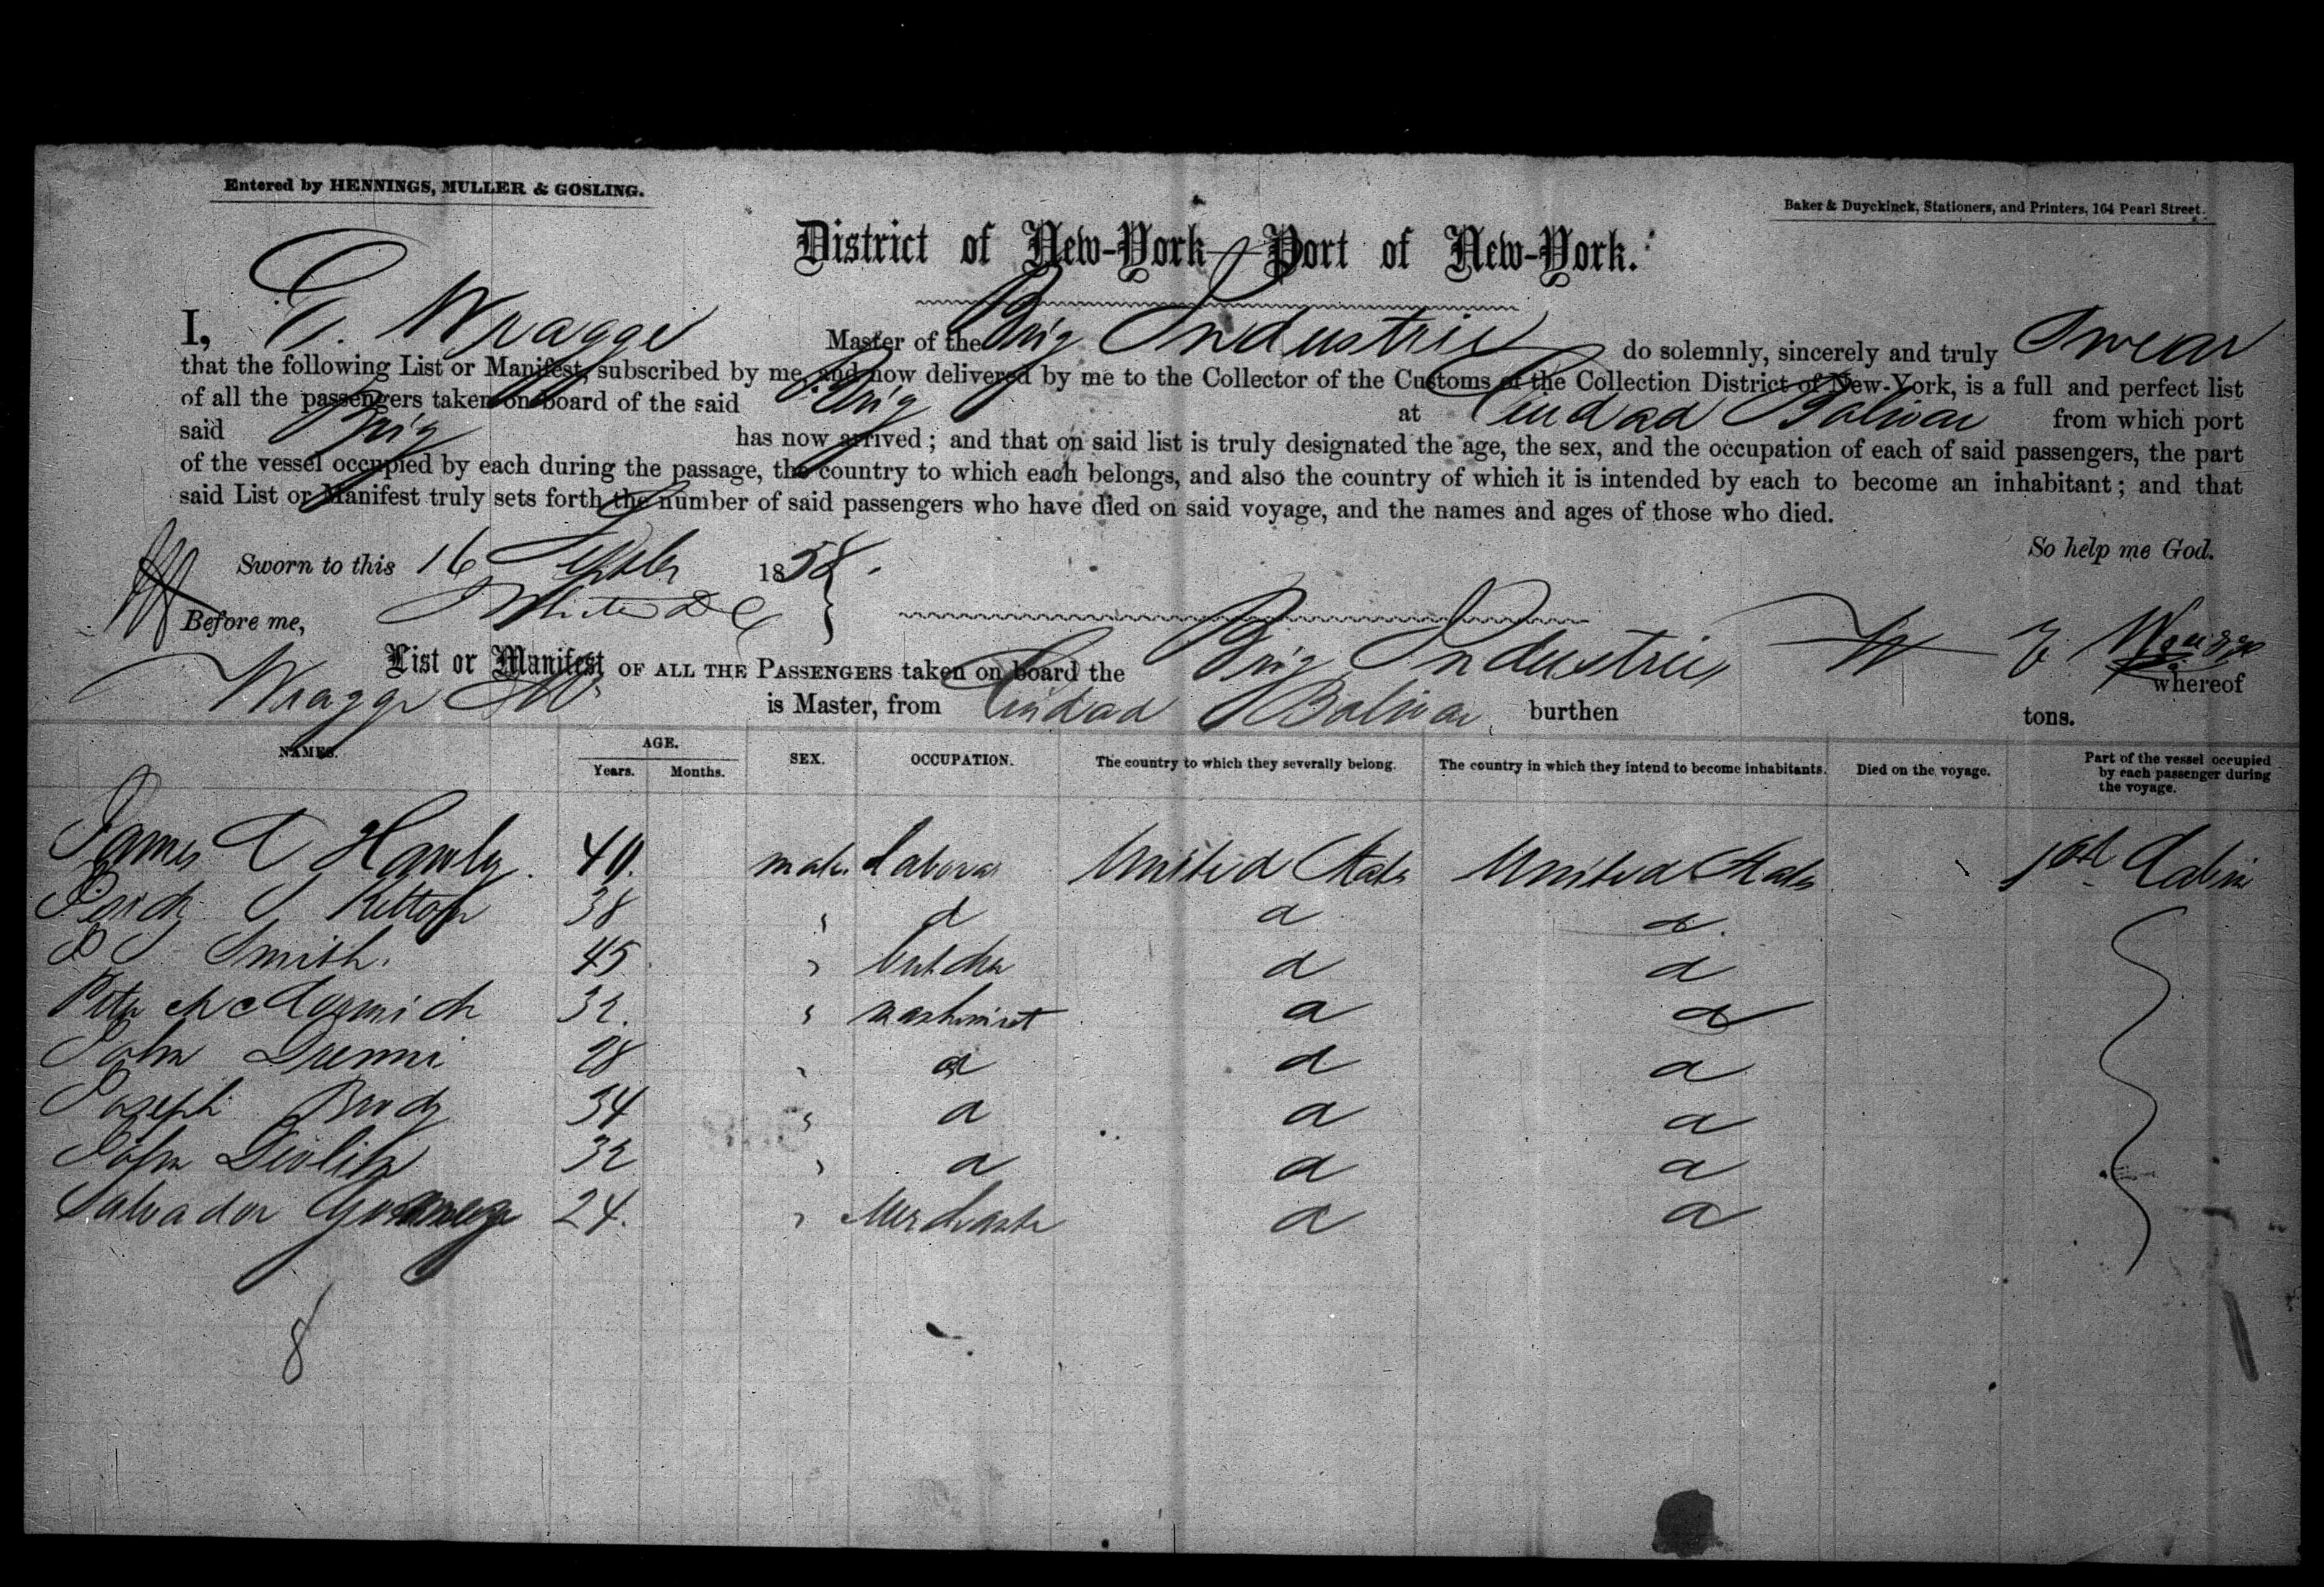 Entered by HENNINGS, MULLER & GOSLING.
Baker & Duyckinck, Stationers, and Printers, 164 Pearl Street.
District of New-York—Port of New-York.
I, G. Wragge Master of the Brig Industrie do solemnly, sincerely and truly Swear
that the following List or Manifest, subscribed by me, and now delivered by me to the Collector of the Customs of the Collection District of New-York, is a full and perfect list
of all the passengers taken on board of the said Brig at Ciudad Bolivar from which port
said Brig has now arrived; and that on said list is truly designated the age, the sex, and the occupation of each of said passengers, the part
of the vessel occupied by each during the passage, the country to which each belongs, and also the country of which it is intended by each to become an inhabitant; and that
said List or Manifest truly sets forth the number of said passengers who have died on said voyage, and the names and ages of those who died.
So help me God.
Sworn to this 16 Septbr 1858.
Before me, White D C
List or Manifest OF ALL THE PASSENGERS taken on board the Brig Industrie
Wragge is Master, from Ciudad Bolivar burthen whereof tons.
NAMES. AGE. Years. Months. SEX. OCCUPATION. The country to which they severally belong. The country in which they intend to become inhabitants. Died on the voyage. Part of the vessel occupied by each passenger during the voyage.
James Hawly. 40. male. Labora United States United States 1st Cabin
38 " d d d.
Smith. 45 " butcher d d
Peter McCormick 32. " mashinist d d
John Drenni 28 " d d d
Joseph Brody 34 " d d d
John Devlin 32 " d d d
Salvador 24. " Merchant d d
8